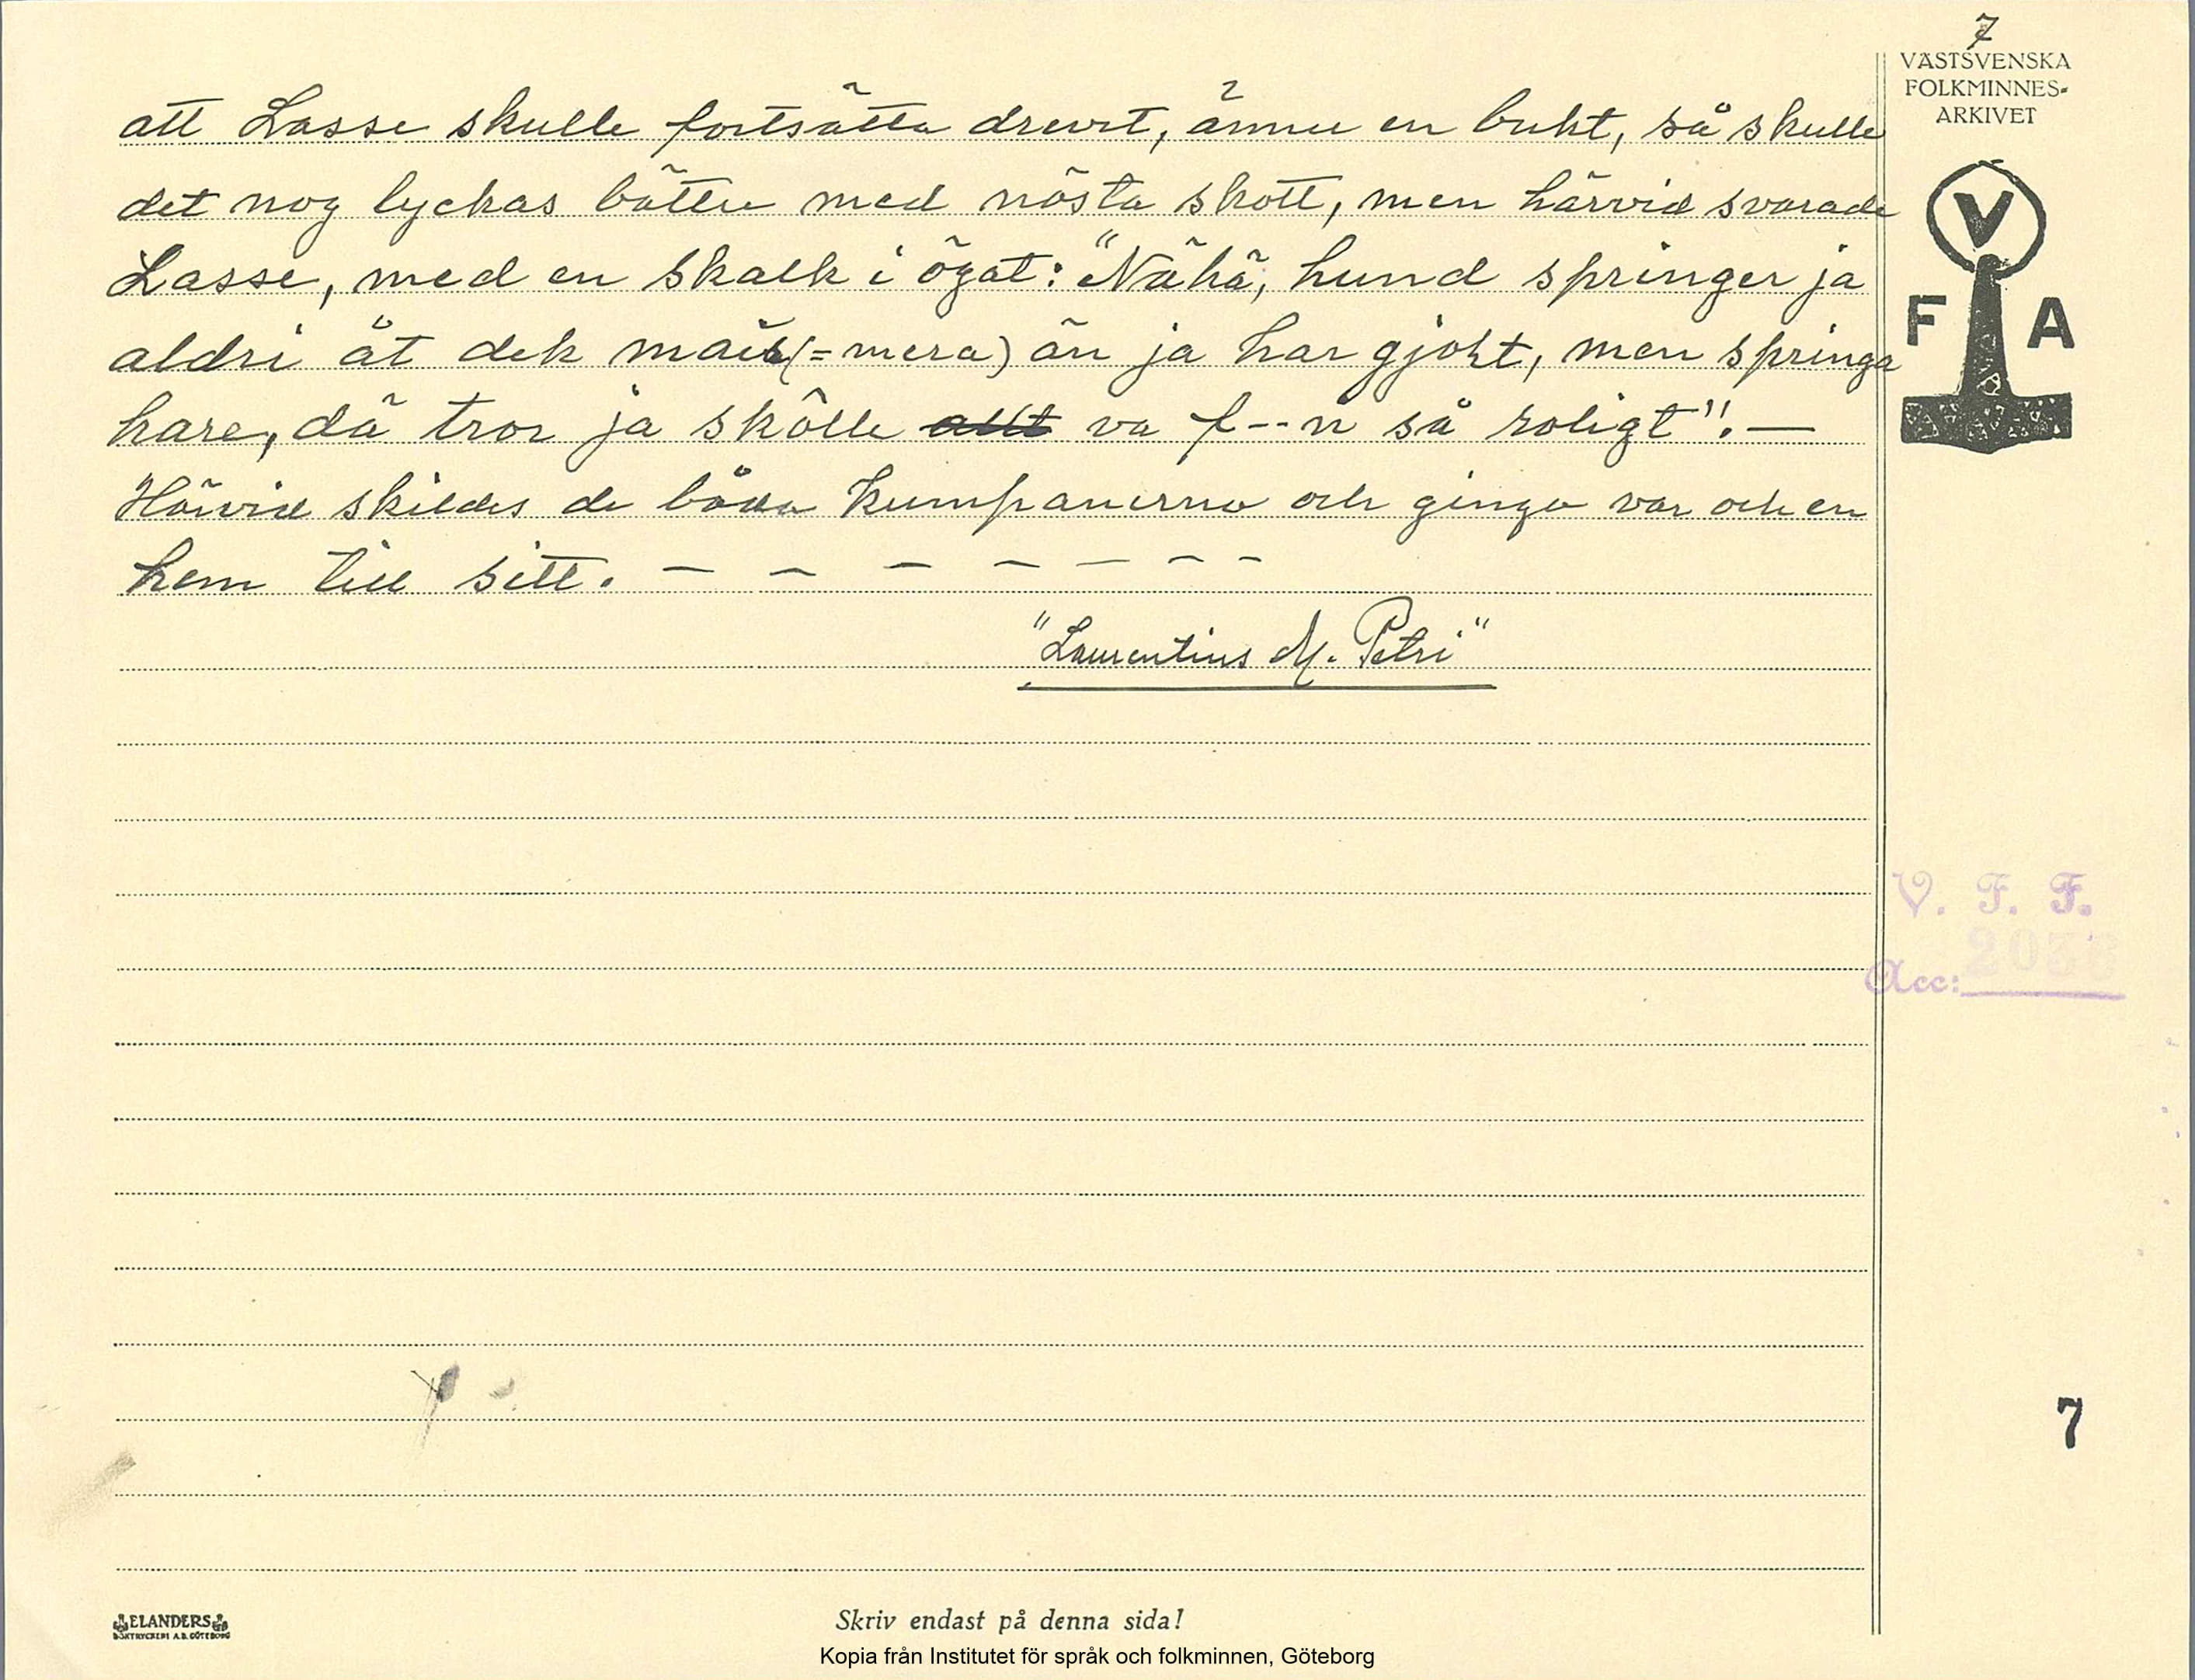 7
VÄSTSVENSKA
FOLKMINNES-
ARKIVET
att Lasse skulle fortsätta drevet, ännu en bukt, så skulle
det nog lyckas bättre med nästa skott, men härvid svarade
Lasse, med en skalk i ögat: "Nähä, hund springer ja
aldri åt dek mäis (=mera) än ja har gjoht, men springa
hare, dä tror ja skölle allt va f--n så roligt".—
Härvid skildes de båda kumpanerna och gingo var och en
hem till sitt. — — — — — — — —
"Laurentius M. Petri"
V
F A
V. F. F.
Acc:
7
ELANDERS
BOKTRYCKERI A.B. GÖTEBORG
Skriv endast på denna sida!
Kopia från Institutet för språk och folkminnen, Göteborg